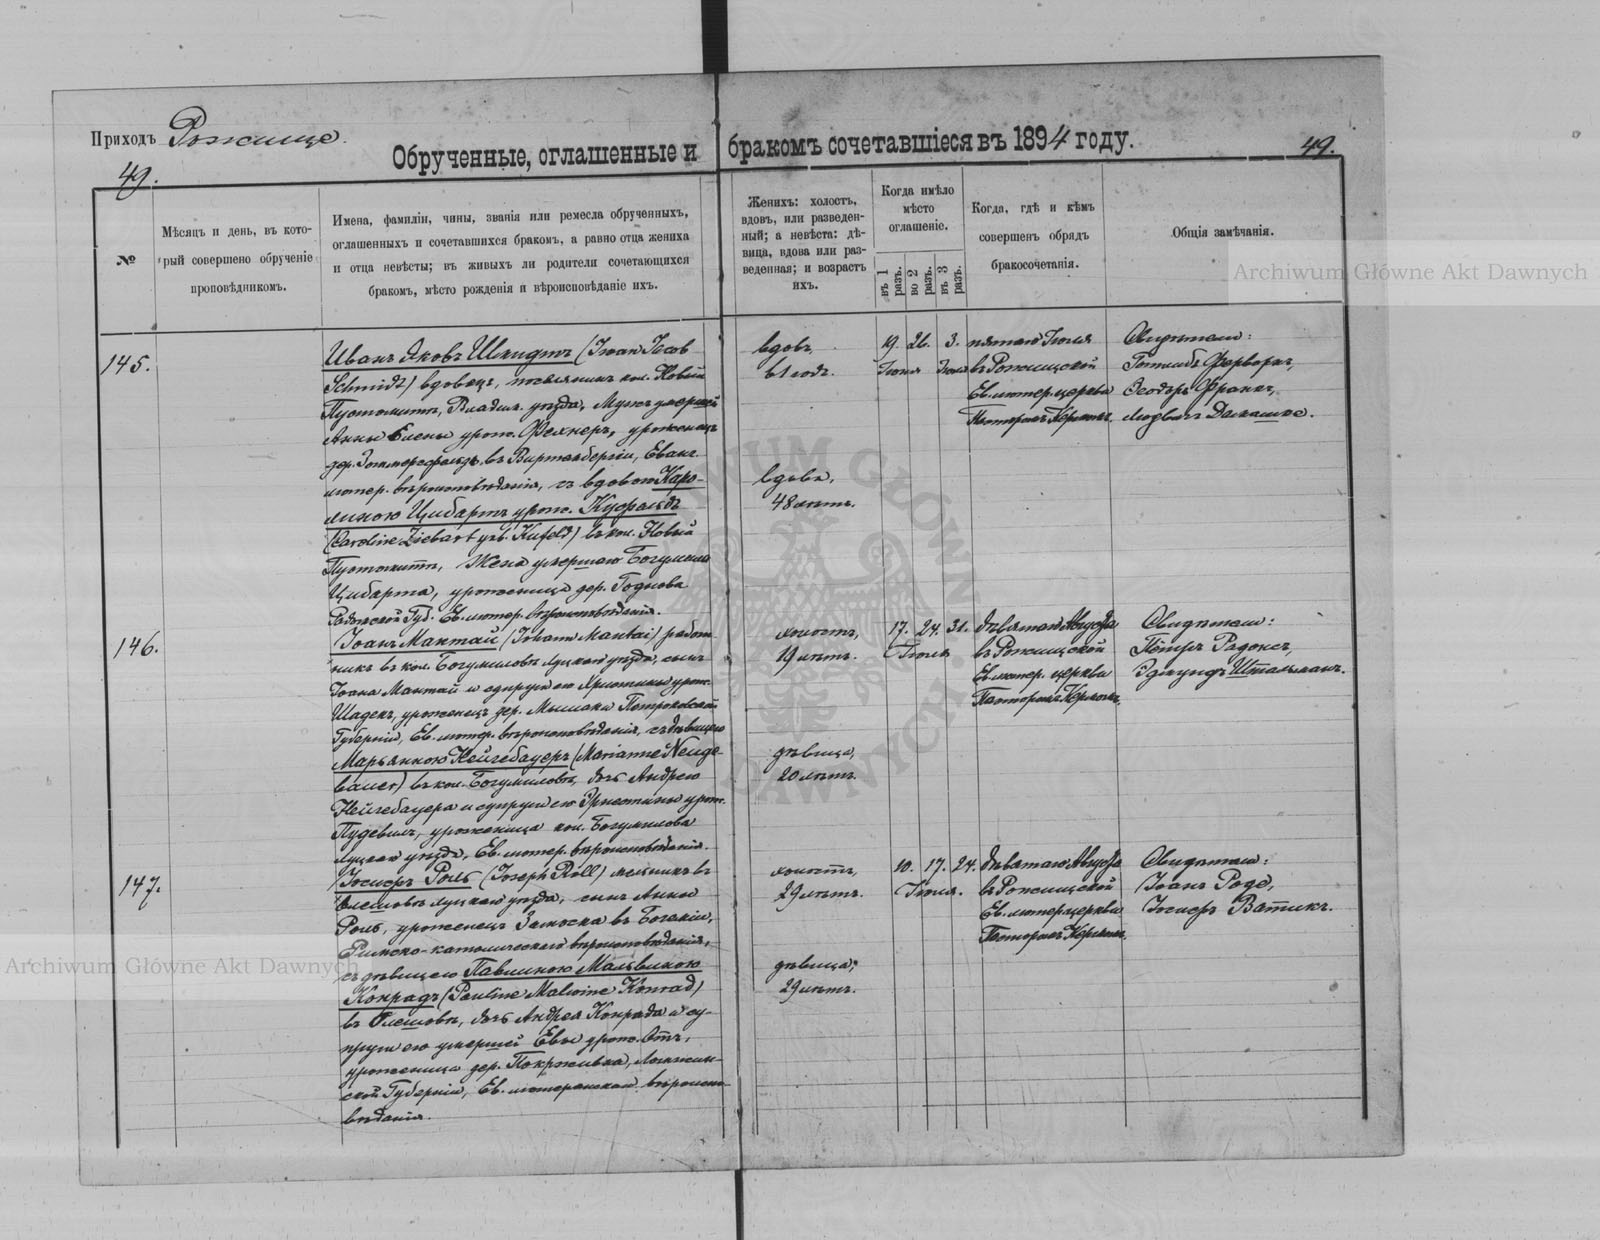 Приходъ Рожище.
Обрученные, оглашенные и бракомъ сочетавшіеся въ 1894 году.
49.
49.
№
Мѣсяцъ и день, въ кото-
рый совершено обрученіе
проповѣдникомъ.
Имена, фамиліи, чины, званія или ремесла обрученныхъ,
оглашенныхъ и сочетавшихся бракомъ, а равно отца жениха
и отца невѣсты; въ живыхъ ли родители сочетающихся
бракомъ, мѣсто рожденія и вѣроисповѣданіе ихъ.
Женихъ: холостъ,
вдовъ, или разведен-
ный; а невѣста: дѣ-
вица, вдова или раз-
веденная; и возрастъ
ихъ.
Когда имѣло
мѣсто
оглашеніе.
въ 1 разъ.
во 2 разъ.
въ 3 разъ.
Когда, гдѣ и кѣмъ
совершенъ обрядъ
бракосочетанія.
Общія замѣчанія.
Archiwum Główne Akt Dawnych
145.
Иванъ Яковъ Шмидтъ (Iwan Jacob
Schmidt) вдовецъ, поселянинъ кол. Новый
Пустомытъ, Владим. уѣзда, Мужъ умершей
Анны Елены урож. Фехнеръ, уроженецъ
въ Виртембергіи, Еванг.
лютер. вѣроисповѣданія, съ вдовою Каро-
линою Цибартъ урож. Куфельдъ
(Caroline Ziebart geb. Kufeld) въ кол. Новый
Пустомытъ, Жена умершаго Богумила
Цибарта, уроженица дер.
Губ. Ев. лютер. вѣроисповѣданія.
вдовъ,
61 годъ.
вдова,
48 лѣтъ.
19. 26. 3.
Іюня Іюля
пятаго Іюля
въ Рожищской
Ев. лютер. церкви
Пасторомъ Керномъ.
Свидѣтели:
Готлибъ
Теодоръ Франкъ,
Людвигъ
146.
Іоанъ Мантай (Johann Mantai) работ-
никъ въ кол. Богумиловъ Луцкаго уѣзда, сынъ
Іоана Мантай и супруги его Христины урож.
Шадекъ, уроженецъ дер. Петроковской
Губерніи, Ев. лютер. вѣроисповѣданія, съ дѣвицею
Марьянною Нейгебауеръ (Marianne Neuge-
bauer) въ кол. Богумиловъ, дочь Андрея
Нейгебауера и супруги его Христины урож.
уроженица кол. Богумилова
Луцкаго уѣзда, Ев. лютер. вѣроисповѣданія.
холостъ,
19 лѣтъ.
дѣвица,
20 лѣтъ.
17. 24. 31.
Іюля
девятаго Августа
въ Рожищской
Ев. лютер. церкви
Пасторомъ Керномъ.
Свидѣтели:
Петръ Радокъ,
Эдмундъ Штальманъ.
147.
Іосифъ Роль (Joseph Roll) мельникъ въ
Олешовъ Луцкаго уѣзда, сынъ Анны
Роль, уроженецъ въ Богеміи,
Римско-католическаго вѣроисповѣданія,
съ дѣвицею Павлиною Мальвиною
Конрадъ (Pauline Malwine Konrad)
въ Олешовъ, дочь Андрея Конрада и су-
пруги его умершей Евы урож. Отъ,
уроженица дер. Ломжин-
ской Губерніи, Ев. лютеранскаго вѣроиспо-
вѣданія.
холостъ,
29 лѣтъ.
дѣвица,
29 лѣтъ.
10. 17. 24.
Іюля.
девятаго Августа
въ Рожищской
Ев. лютер. церкви
Пасторомъ Керномъ.
Свидѣтели:
Іоанъ Роде,
Іосифъ Ватцикъ.
Archiwum Główne Akt Dawnych